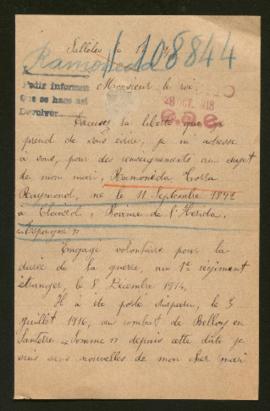 Ramoneda // 108844
Pedir informes
Que se hace así
Devolver
Monsieur le roi
28 OCT. 1918
la liberté que
prend de vous écrire, je m'adresse
à vous, pour des renseignements au sujet
de mon mari, Ramonéda
Raymond, né le 11 Septembre 1892
à province de
Espagne
Engagé volontaire pour la
durée de la guerre, au 1er régiment
étranger, le 8 Décembre 1914.
Il a été porté disparu, le 5
juillet 1916, au combat de Belloy en
Santerre "Somme" depuis cette date je
suis sans nouvelles de mon cher mari